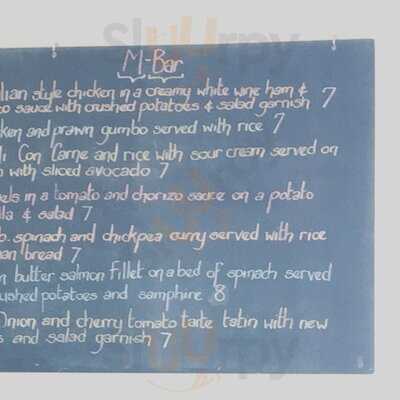 Sluurpy
M-Bar
style chicken in a creamy white wine ham &
sauce with crushed potatoes & salad garnish 7
and prawn gumbo served with rice 7
Con Carne and rice with sour cream served on
with sliced avocado 7
in a tomato and chorizo sauce on a potato
& salad 7
spinach and chickpea curry served with rice
bread 7
butter salmon fillet on a bed of spinach served
potatoes and samphire 8
Onion and cherry tomato tarte tatin with new
and salad garnish 7
Sluurpy